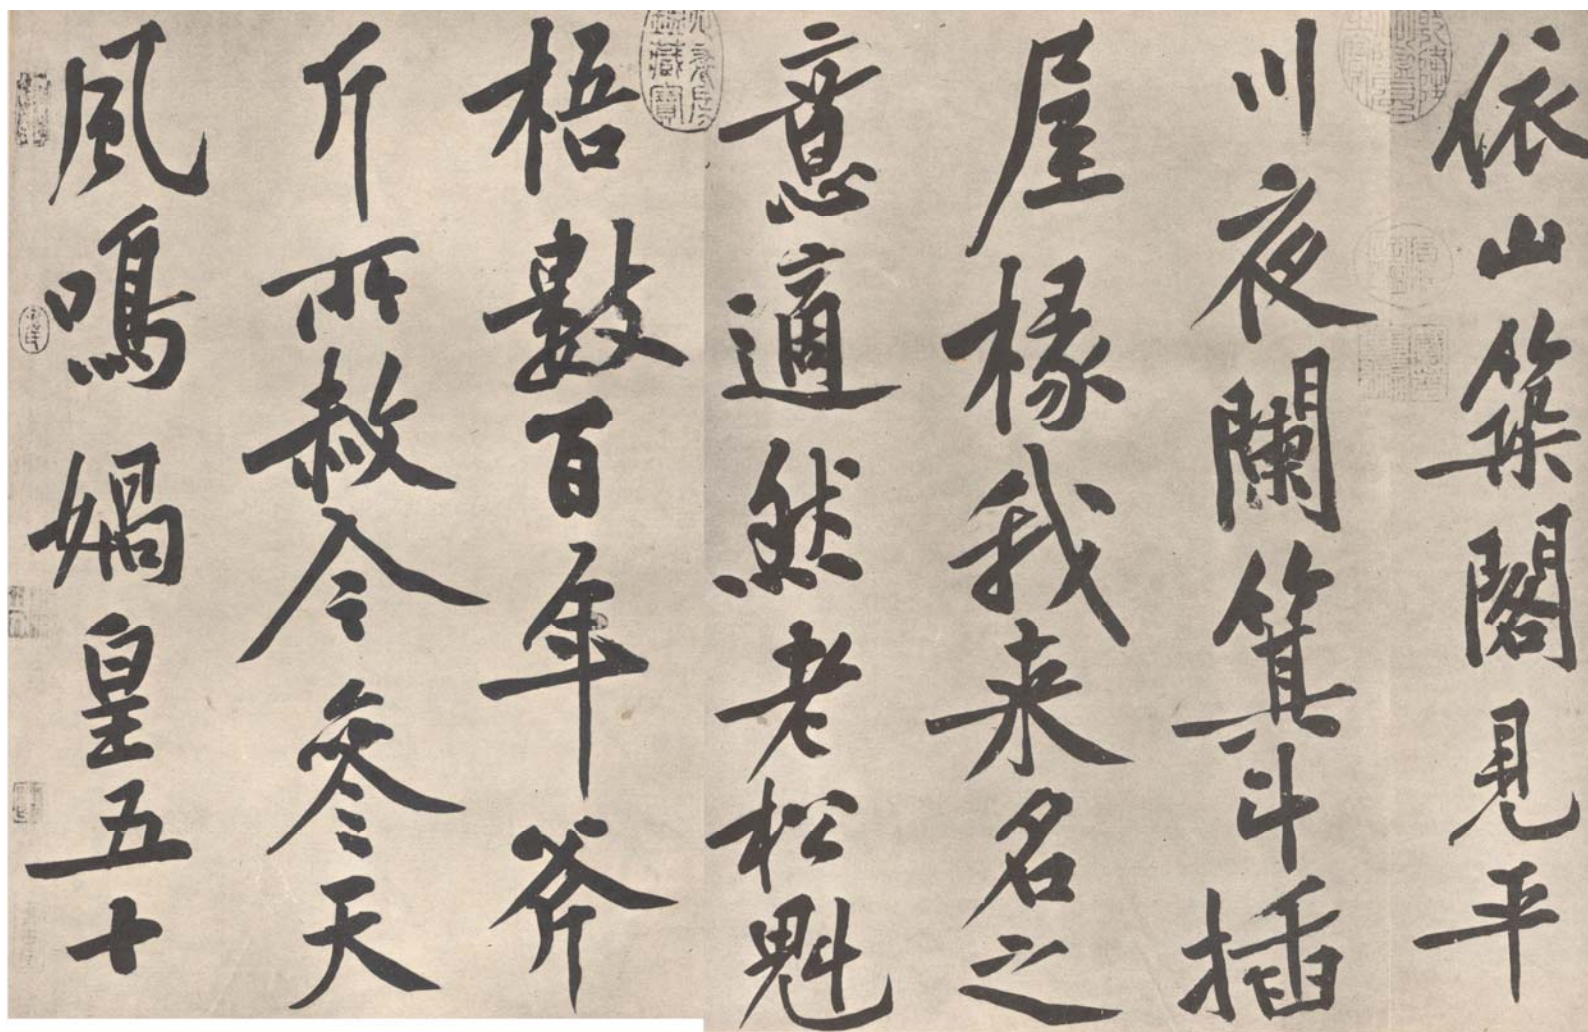 依山築閣見平
川夜闌箕斗插
屋椽我來名之
意適然老松魁
梧數百年斧
斤所赦令參天
風鳴媧皇五十